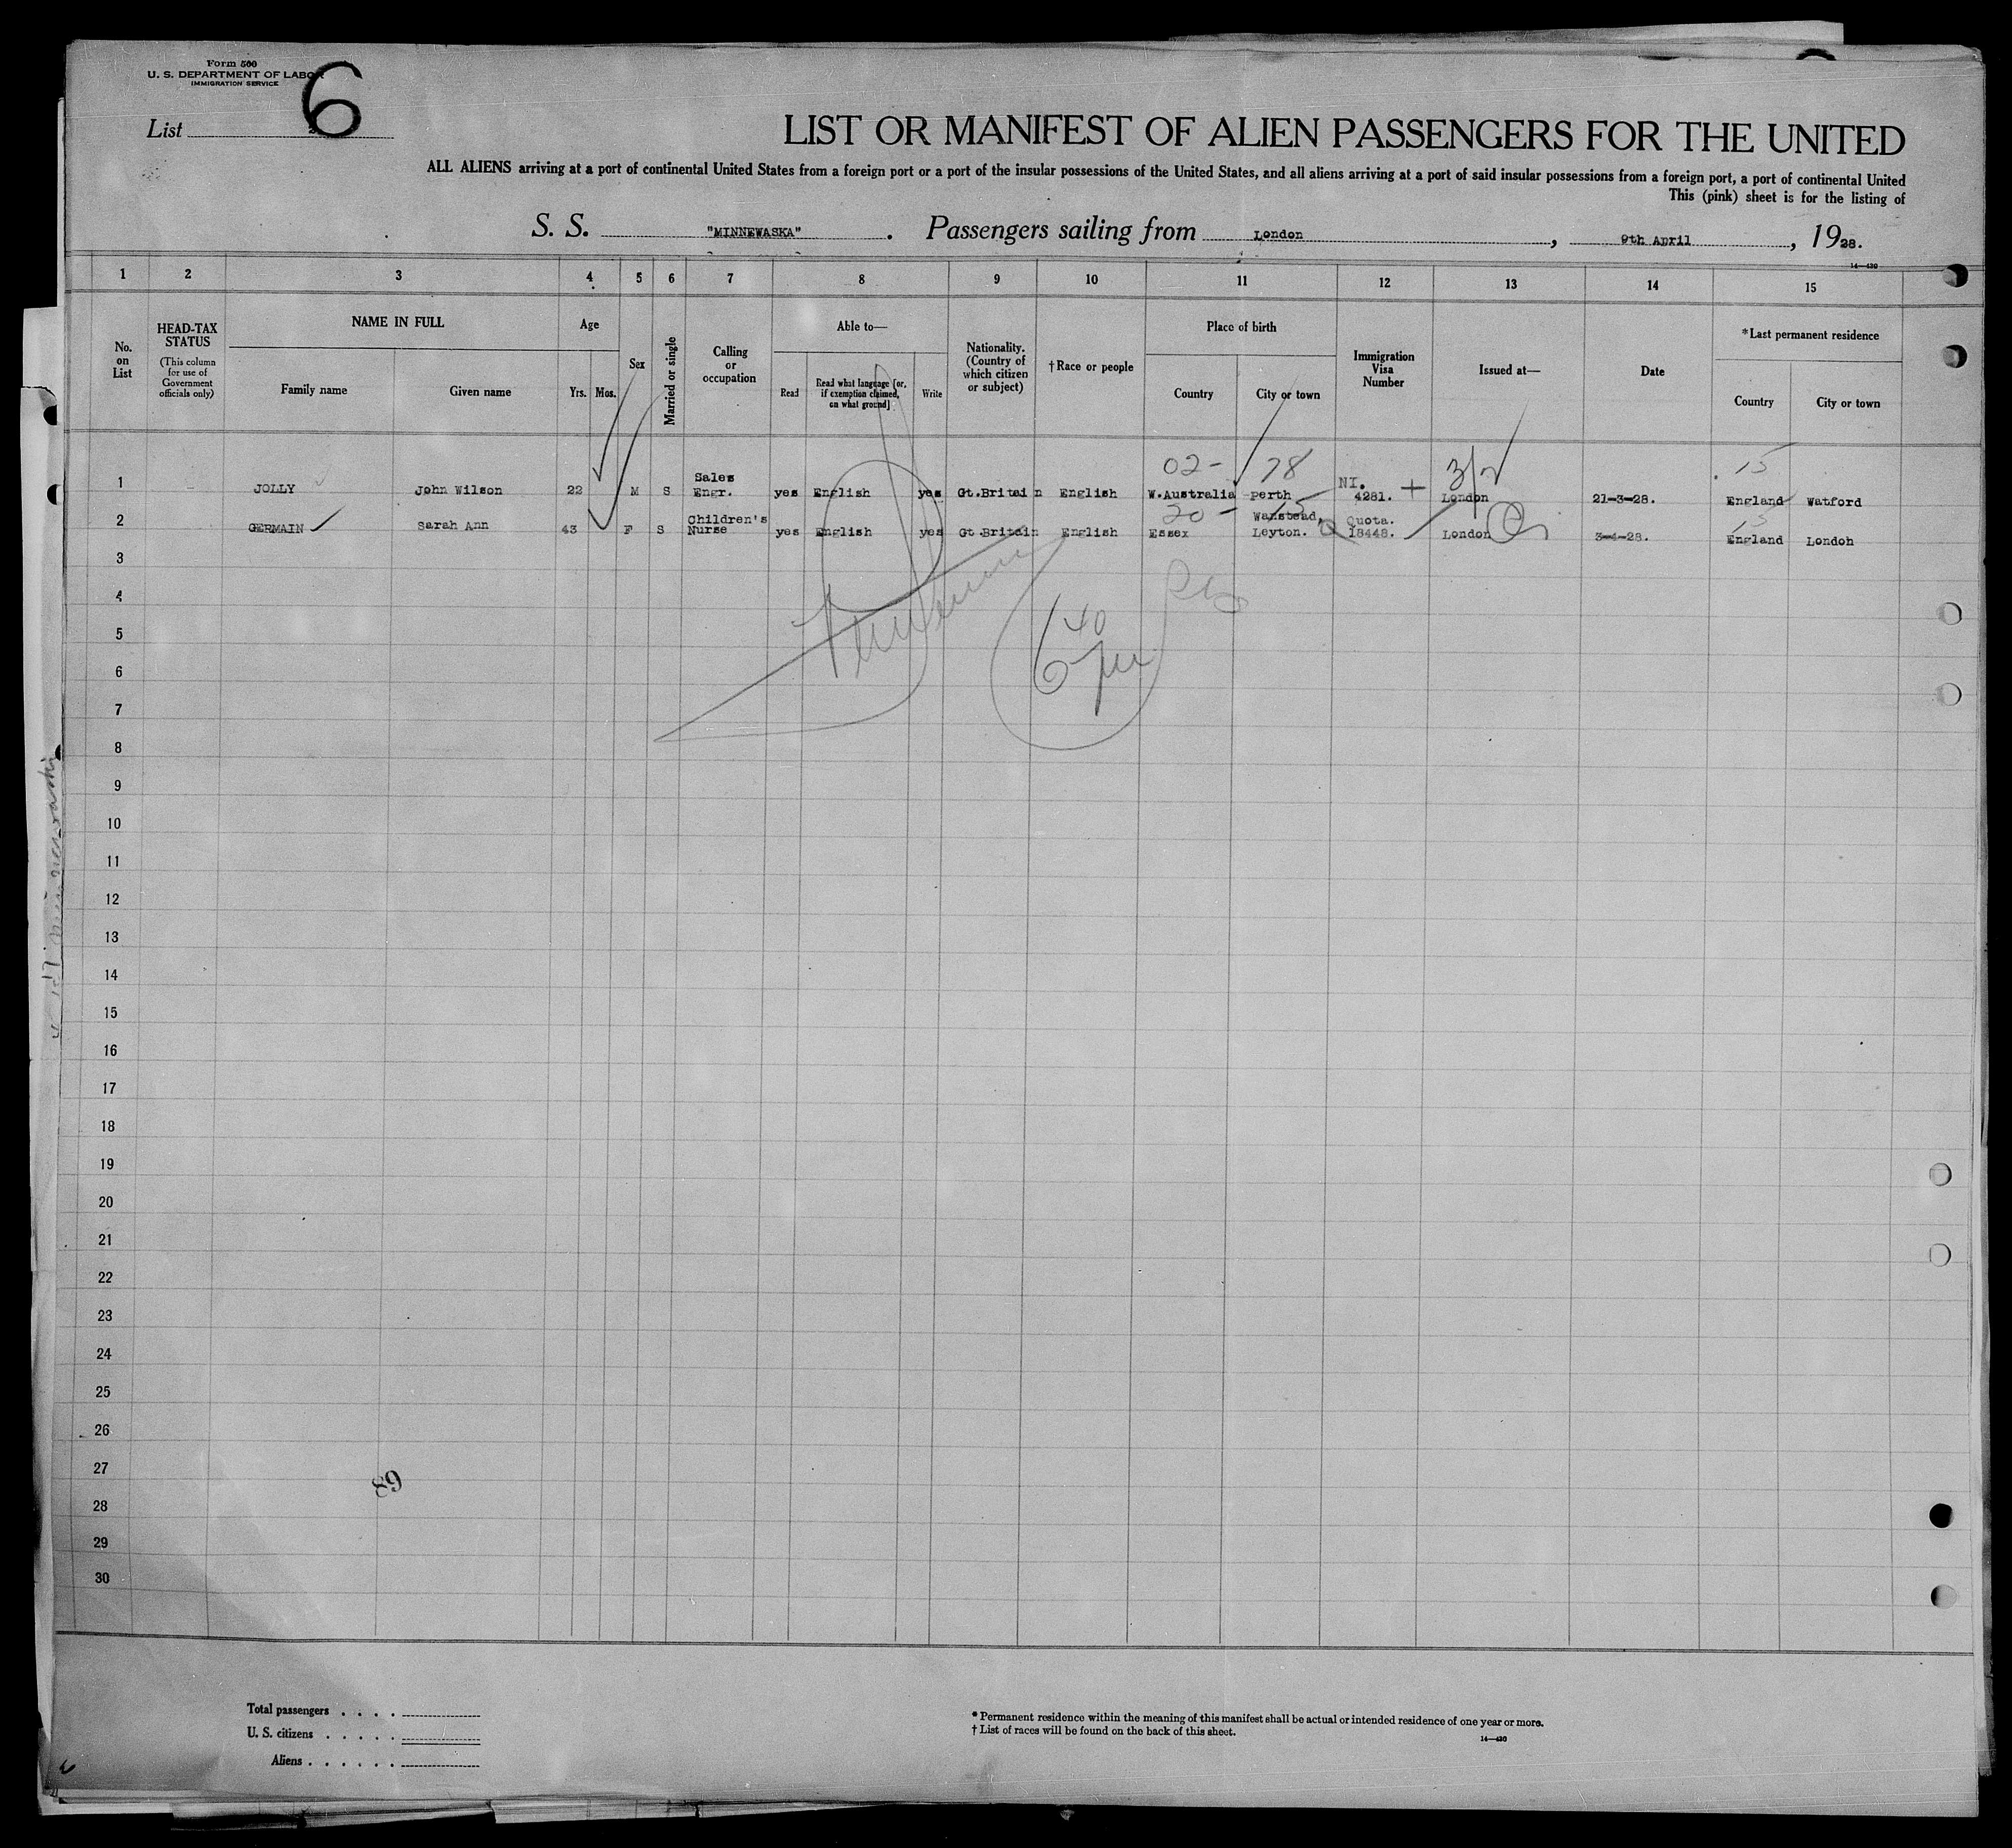 Form 500
U. S. DEPARTMENT OF LABOR
IMMIGRATION SERVICE
6
List
LIST OR MANIFEST OF ALIEN PASSENGERS FOR THE UNITED
ALL ALIENS arriving at a port of continental United States from a foreign port or a port of the insular possessions of the United States, and all aliens arriving at a port of said insular possessions from a foreign port, a port of continental United
This (pink) sheet is for the listing of
S. S. "MINNEWASKA". Passengers sailing from London, 9th April, 1928.
14—430
1 2 3 4 5 6 7 8 9 10 11 12 13 14 15
No. on List
HEAD-TAX STATUS
(This column for use of Government officials only)
NAME IN FULL
Family name
Given name
Age
Yrs. Mos.
Sex
Married or single
Calling or occupation
Able to—
Read
Read what language [or, if exemption claimed, on what ground]
Write
Nationality. (Country of which citizen or subject)
†Race or people
Place of birth
Country
City or town
Immigration Visa Number
Issued at—
Date
*Last permanent residence
Country
City or town
02- 78 3/2 15
1 JOLLY John Wilson 22 M S Sales Engr. yes English yes Gt.Britain English W.Australia Perth NI. 4281. + London 21-3-28. England Watford
20- 15 15
2 GERMAIN Sarah Ann 43 F S Children's Nurse yes English yes Gt.Britain English Essex Wanstead, Leyton. Quota. 18448. London 3-4-28. England London
3
4
5
40
6
6
7
8
9
10
11
12
13
14
15
16
17
18
19
20
21
22
23
24
25
26
27
89
28
29
30
Total passengers . . . .
U. S. citizens . . . . .
Aliens . . . . . .
* Permanent residence within the meaning of this manifest shall be actual or intended residence of one year or more.
† List of races will be found on the back of this sheet.
14—430